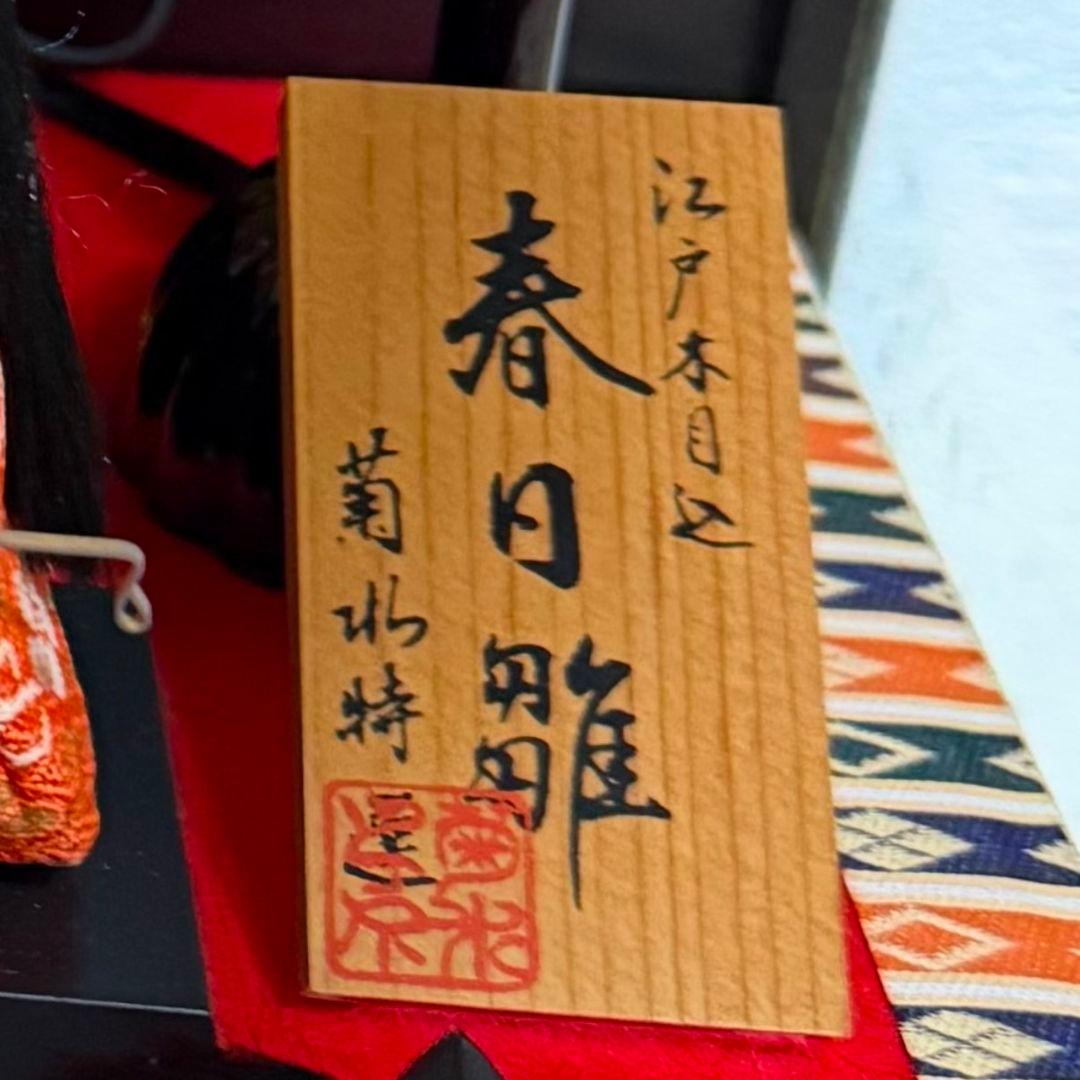 江戸木目込
春日雛
菊水特選